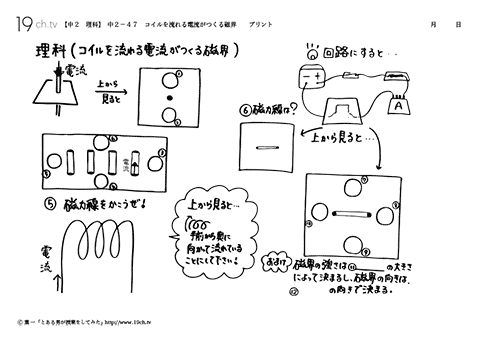 19ch.tv 【中2 理科】 中2-47 コイルを流れる電流がつくる磁界 プリント 月 日
理科(コイルを流れる電流がつくる磁界)
電流
上から
見ると
①
②
回路にすると…
A
⑥磁力線は?
上から見ると…
③
④
電流
⑤ 磁力線をかこうぜ!
電流
上から見ると…
手前から奥に
向かって流れている
ことにして下さい!
⑦
⑧
⑨
⑩
おまけ 磁界の強さは⑪＿＿の大きさ
によって決まるし、磁界の向きは、
⑫＿＿の向きで決まる。
Ⓒ葉一「とある男が授業をしてみた」http://www.19ch.tv